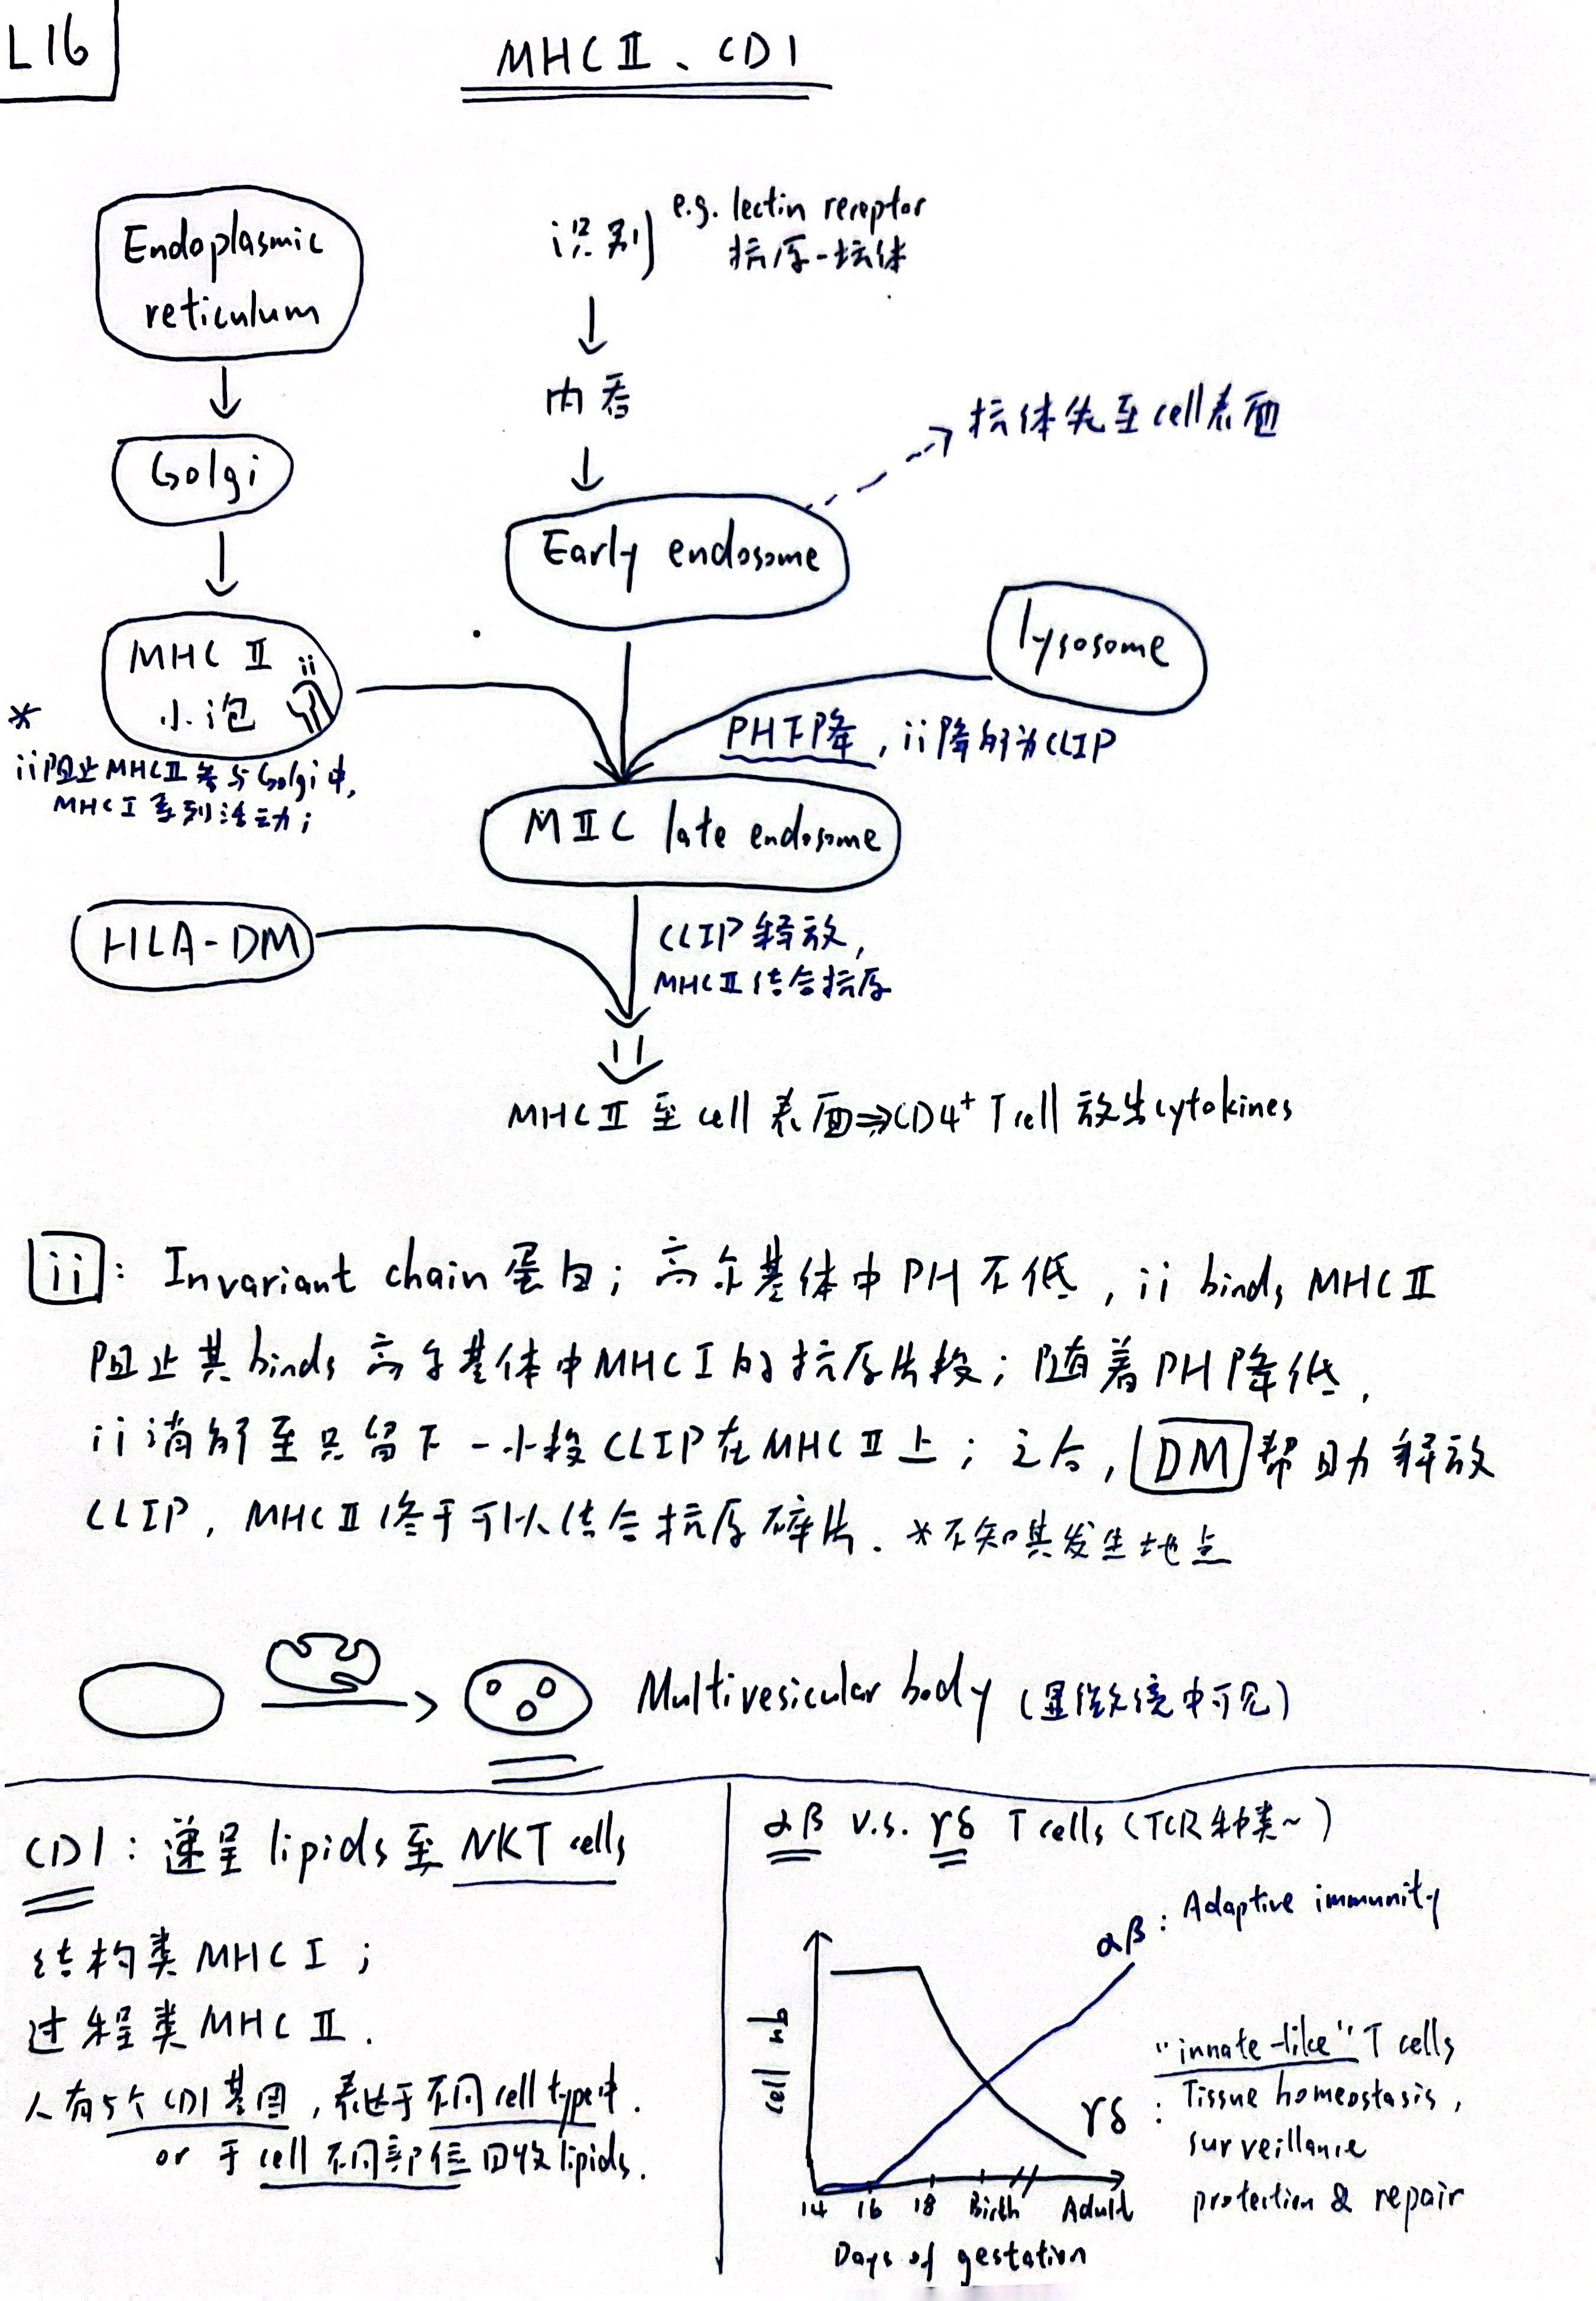 L16
MHC Ⅱ、CD1
Endoplasmic
reticulum
识别
e.g. lectin receptor
抗原-抗体
内吞
抗体先至cell表面
Golgi
Early endosome
lysosome
MHC Ⅱ ii
小泡
*
ii阻止MHCⅡ参与Golgi中,
MHC Ⅰ系列活动;
PH下降, ii降解为CLIP
MⅡC late endosome
HLA-DM
CLIP 释放,
MHCⅡ结合抗原
MHCⅡ至cell表面⇒CD4⁺ T cell 放出cytokines
ii: Invariant chain 蛋白; 高尔基体中PH不低, ii binds MHCⅡ
阻止其binds 高尔基体中MHCⅠ的抗原片段; 随着PH降低,
ii消解至只留下一小段CLIP在MHCⅡ上; 之后, DM帮助释放
CLIP, MHCⅡ终于可以结合抗原碎片. *不知其发生地点
Multivesicular body (显微镜中可见)
CD1: 递呈lipids至NKT cells
结构类MHCⅠ;
过程类MHCⅡ.
人有5个CD1基因, 表达于不同cell type中.
or 于cell不同部位回收lipids.
αβ v.s. γδ T cells (TCR种类~)
αβ: Adaptive immunity
cell nb
γδ:
"innate-like" T cells
Tissue homeostasis,
surveillance
protection & repair
14 16 18 Birth Adult
Days of gestation